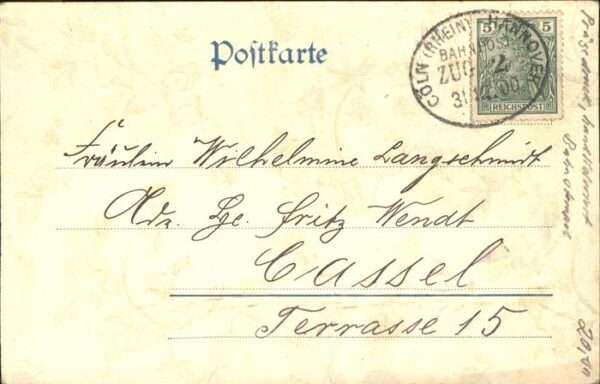 Postkarte
CÖLN (RHEIN) HANNOVER
BAHNPOST
ZUG 2
31.12.00
5 5
REICHSPOST
Fräulein Wilhelmine Langschmidt
Adr. Hr. Fritz Wendt
Cassel
Terrasse 15
Prägedruck, handkoloriert
Bahnstempel
20,00